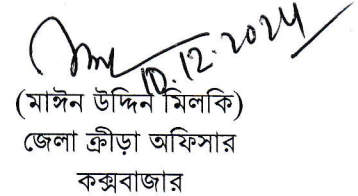 10.12.2024
(মাঈন উদ্দিন মিলকি)
জেলা ক্রীড়া অফিসার
কক্সবাজার